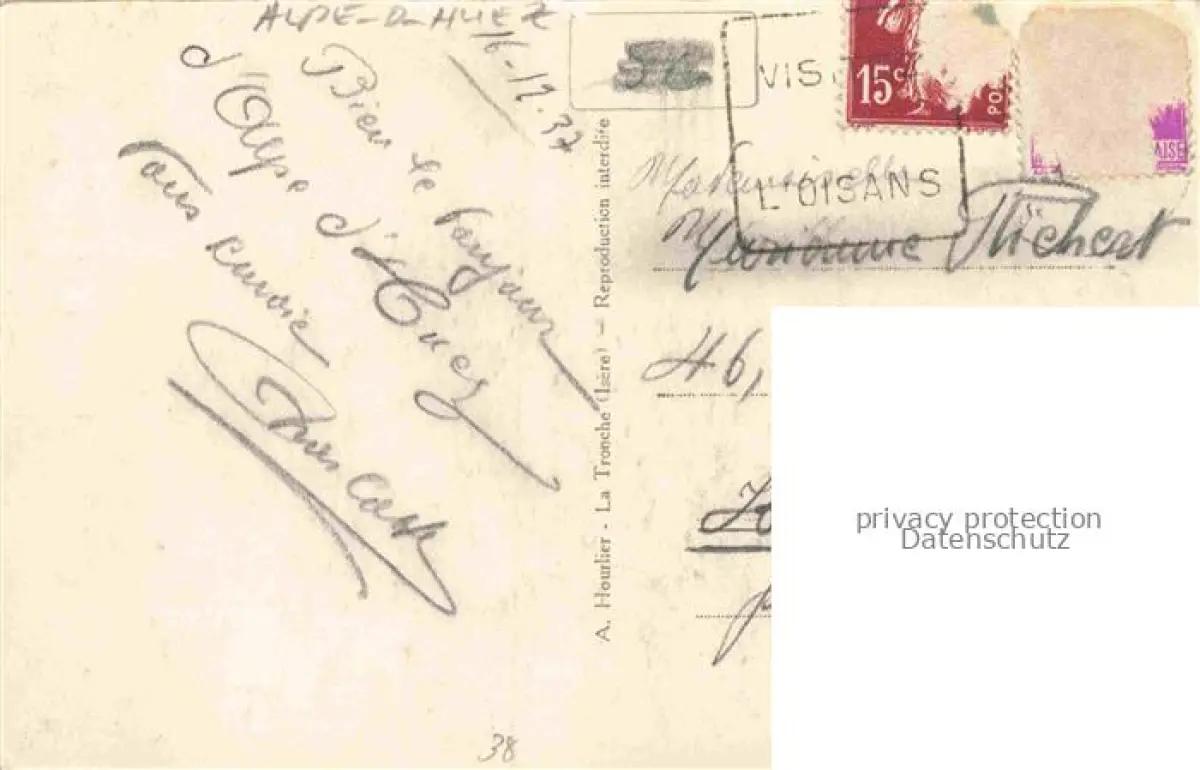 ALPE-D-HUEZ
16-12.37
Bien le bonjour
d'Alpe d'Huez
vous envoie
A. Hourlier - La Tronche (Isère) - Reproduction interdite
VIS
L'OISANS
15c
PO
AISE
Marianne
46,
38
privacy protection
Datenschutz